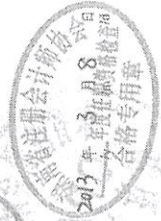 省注册会计师协会
2013 年 3 月 8 日
年度任职资格检查
合格专用章